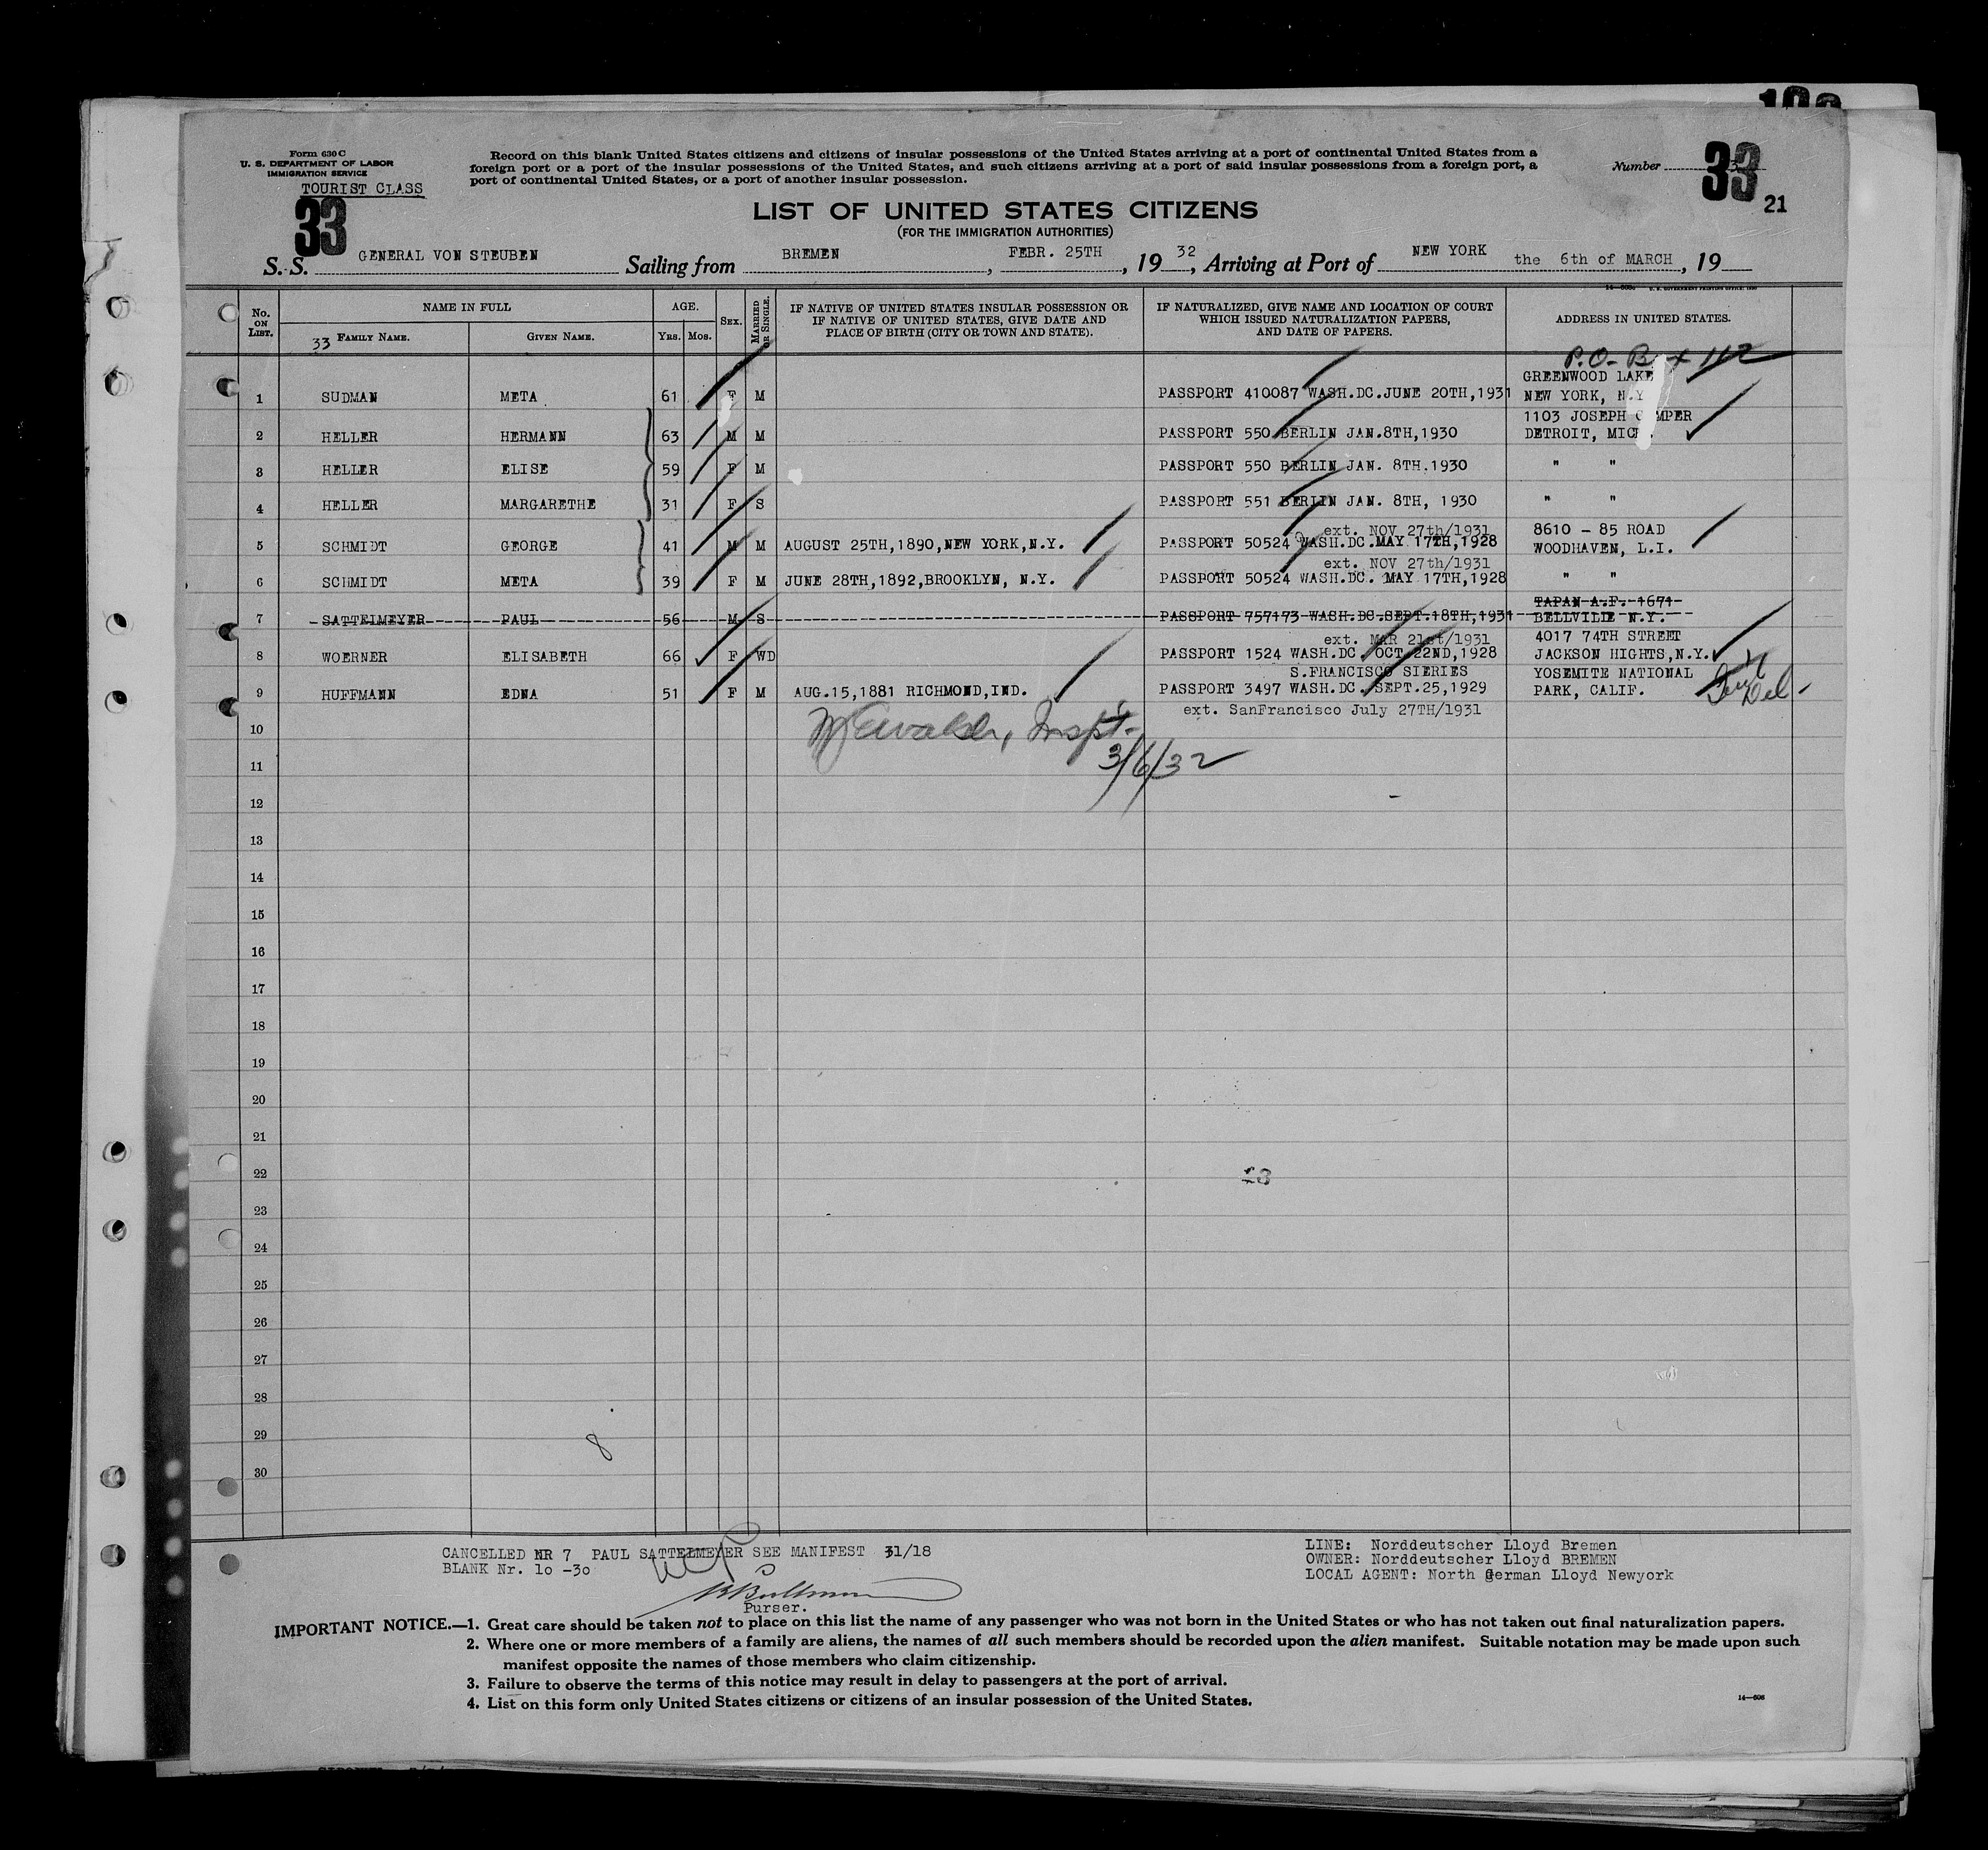 Form 630 C
U. S. DEPARTMENT OF LABOR
IMMIGRATION SERVICE
TOURIST CLASS
33
Record on this blank United States citizens and citizens of insular possessions of the United States arriving at a port of continental United States from a
foreign port or a port of the insular possessions of the United States, and such citizens arriving at a port of said insular possessions from a foreign port, a
port of continental United States, or a port of another insular possession.
Number 33
21
LIST OF UNITED STATES CITIZENS
(FOR THE IMMIGRATION AUTHORITIES)
S. S. GENERAL VON STEUBEN Sailing from BREMEN, FEBR. 25TH, 19 32, Arriving at Port of NEW YORK the 6th of MARCH, 19
No. ON LIST.
NAME IN FULL
33 FAMILY NAME.
GIVEN NAME.
AGE.
YRS. MOS.
SEX.
MARRIED OR SINGLE.
IF NATIVE OF UNITED STATES INSULAR POSSESSION OR
IF NATIVE OF UNITED STATES, GIVE DATE AND
PLACE OF BIRTH (CITY OR TOWN AND STATE).
IF NATURALIZED, GIVE NAME AND LOCATION OF COURT
WHICH ISSUED NATURALIZATION PAPERS,
AND DATE OF PAPERS.
ADDRESS IN UNITED STATES.
P.O. Box 112
GREENWOOD LAKE
1 SUDMAN META 61 F M PASSPORT 410087 WASH.DC.JUNE 20TH,1931 NEW YORK, N.Y
1103 JOSEPH
2 HELLER HERMANN 63 M M PASSPORT 550 BERLIN JAN.8TH,1930 DETROIT, MICH.
3 HELLER ELISE 59 F M PASSPORT 550 BERLIN JAN. 8TH.1930 " "
4 HELLER MARGARETHE 31 F S PASSPORT 551 BERLIN JAN. 8TH, 1930 " "
ext. NOV 27th/1931 8610 - 85 ROAD
5 SCHMIDT GEORGE 41 M M AUGUST 25TH,1890,NEW YORK,N.Y. PASSPORT 50524 WASH.DC.MAY 17TH,1928 WOODHAVEN, L.I.
ext. NOV 27th/1931
6 SCHMIDT META 39 F M JUNE 28TH,1892,BROOKLYN, N.Y. PASSPORT 50524 WASH.DC. MAY 17TH,1928 " "
TAPAN A.F. 1671
7 SATTELMEYER PAUL 56 M S PASSPORT 757173 WASH.DC.SEPT.18TH,1931 BELLVILLE N.Y.
ext. MAR 21st/1931 4017 74TH STREET
8 WOERNER ELISABETH 66 F WD PASSPORT 1524 WASH.DC. OCT 22ND,1928 JACKSON HIGHTS,N.Y.
S.FRANCISCO SIERIES YOSEMITE NATIONAL
9 HUFFMANN EDNA 51 F M AUG.15,1881 RICHMOND,IND. PASSPORT 3497 WASH.DC. SEPT.25,1929 PARK, CALIF.
ext. SanFrancisco July 27TH/1931
10
3/6/32
11
12
13
14
15
16
17
18
19
20
21
22
23
24
25
26
27
28
29
8
30
CANCELLED NR 7 PAUL SATTELMEYER SEE MANIFEST 31/18
BLANK Nr. 1o -3o
Purser.
LINE: Norddeutscher Lloyd Bremen
OWNER: Norddeutscher Lloyd BREMEN
LOCAL AGENT: North German Lloyd Newyork
IMPORTANT NOTICE.—1. Great care should be taken not to place on this list the name of any passenger who was not born in the United States or who has not taken out final naturalization papers.
2. Where one or more members of a family are aliens, the names of all such members should be recorded upon the alien manifest. Suitable notation may be made upon such
manifest opposite the names of those members who claim citizenship.
3. Failure to observe the terms of this notice may result in delay to passengers at the port of arrival.
4. List on this form only United States citizens or citizens of an insular possession of the United States.
14—608